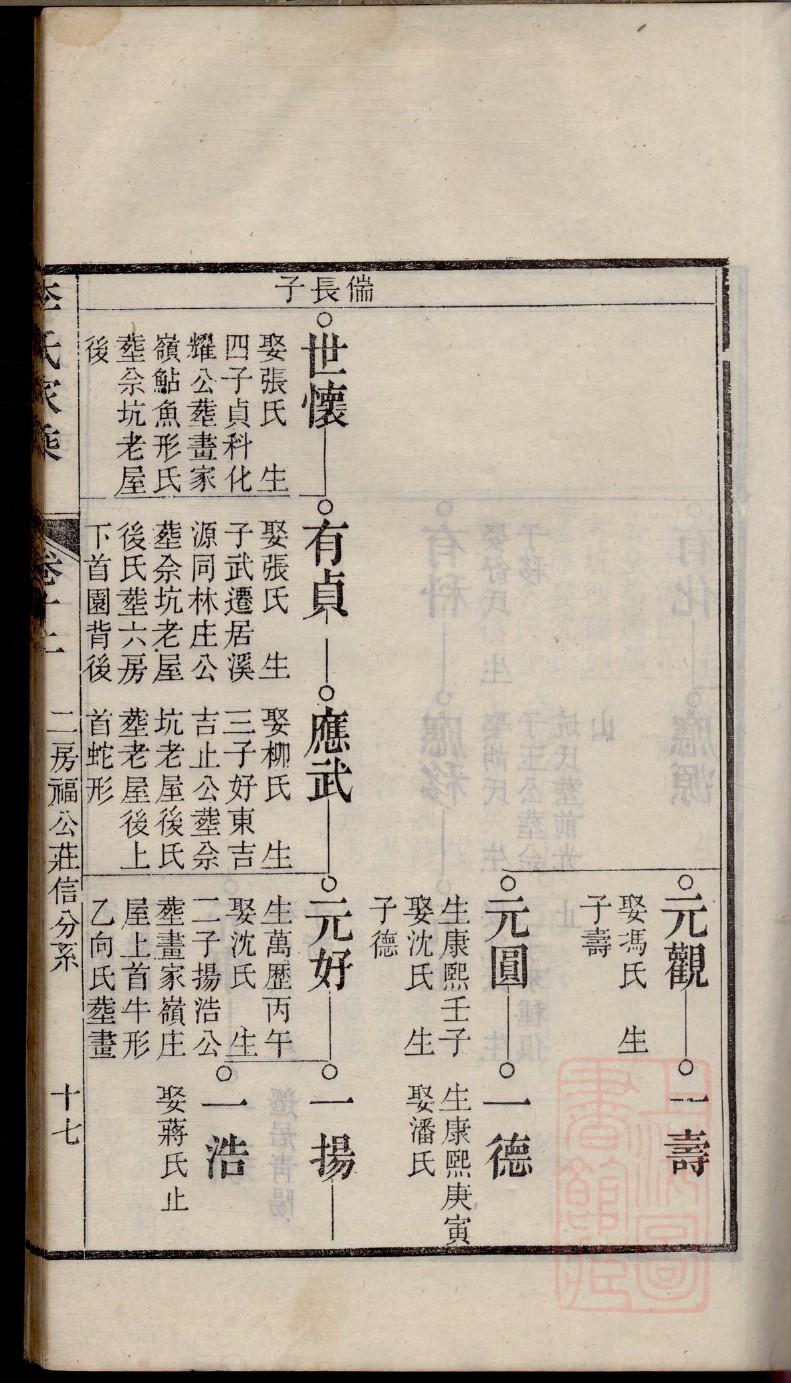 元觀
娶馮氏　生
子壽
一壽
元圓
生康熙壬子
娶沈氏　生
子德
一德
生康熙庚寅
娶潘氏
倘長子
世懷
娶張氏　生
四子貞科化
耀公塟畫家
嶺鮎魚形氏
塟佘坑老屋
後
有貞
娶張氏　生
子武遷居溪
源同林庄公
塟佘坑老屋
後氏塟六房
下首園背後
應武
娶柳氏　生
三子好東吉
吉止公塟佘
坑老屋後氏
塟老屋後上
首蛇形
元好
生萬歷丙午
娶沈氏　生
二子揚浩公
塟畫家嶺庄
屋上首牛形
乙向氏塟畫
一揚
一浩
娶蔣氏止
李氏家乘
二房福公莊信分系
十七